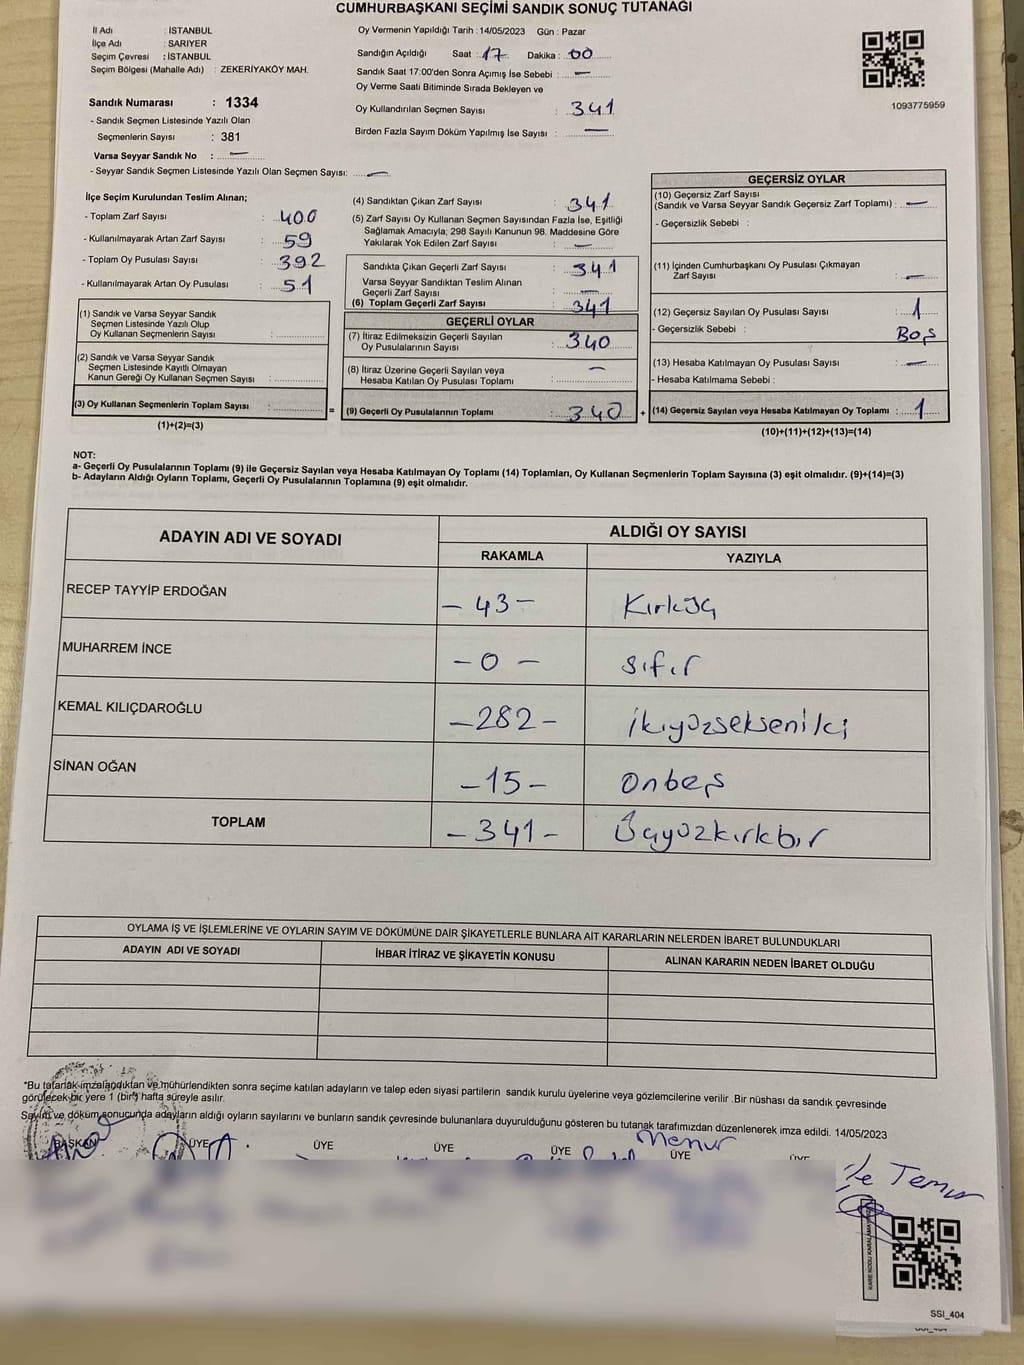 CUMHURBAŞKANI SEÇİMİ SANDIK SONUÇ TUTANAĞI
İl Adı : İSTANBUL
İlçe Adı : SARIYER
Seçim Çevresi : İSTANBUL
Seçim Bölgesi (Mahalle Adı) : ZEKERİYAKÖY MAH.
Sandık Numarası : 1334
- Sandık Seçmen Listesinde Yazılı Olan
Seçmenlerin Sayısı : 381
Varsa Seyyar Sandık No : —
- Seyyar Sandık Seçmen Listesinde Yazılı Olan Seçmen Sayısı: —
Oy Vermenin Yapıldığı Tarih : 14/05/2023 Gün : Pazar
Sandığın Açıldığı Saat : 17 Dakika : 00
Sandık Saat 17:00'den Sonra Açımış İse Sebebi : —
Oy Verme Saati Bitiminde Sırada Bekleyen ve
Oy Kullandırılan Seçmen Sayısı : 341
Birden Fazla Sayım Döküm Yapılmış İse Sayısı : —
1093775959
İlçe Seçim Kurulundan Teslim Alınan;
- Toplam Zarf Sayısı : 400
- Kullanılmayarak Artan Zarf Sayısı : 59
- Toplam Oy Pusulası Sayısı : 392
- Kullanılmayarak Artan Oy Pusulası : 51
(1) Sandık ve Varsa Seyyar Sandık
Seçmen Listesinde Yazılı Olup
Oy Kullanan Seçmenlerin Sayısı :
(2) Sandık ve Varsa Seyyar Sandık
Seçmen Listesinde Kayıtlı Olmayan
Kanun Gereği Oy Kullanan Seçmen Sayısı :
(3) Oy Kullanan Seçmenlerin Toplam Sayısı : =
(1)+(2)=(3)
(4) Sandıktan Çıkan Zarf Sayısı : 341
(5) Zarf Sayısı Oy Kullanan Seçmen Sayısından Fazla İse, Eşitliği
Sağlamak Amacıyla; 298 Sayılı Kanunun 98. Maddesine Göre
Yakılarak Yok Edilen Zarf Sayısı : —
Sandıkta Çıkan Geçerli Zarf Sayısı : 341
Varsa Seyyar Sandıktan Teslim Alınan
Geçerli Zarf Sayısı : —
(6) Toplam Geçerli Zarf Sayısı : 341
GEÇERLİ OYLAR
(7) İtiraz Edilmeksizin Geçerli Sayılan
Oy Pusulalarının Sayısı : 340
(8) İtiraz Üzerine Geçerli Sayılan veya
Hesaba Katılan Oy Pusulası Toplamı : —
(9) Geçerli Oy Pusulalarının Toplamı : 340 +
GEÇERSİZ OYLAR
(10) Geçersiz Zarf Sayısı
(Sandık ve Varsa Seyyar Sandık Geçersiz Zarf Toplamı) : —
- Geçersizlik Sebebi :
(11) İçinden Cumhurbaşkanı Oy Pusulası Çıkmayan
Zarf Sayısı : —
(12) Geçersiz Sayılan Oy Pusulası Sayısı : 1
- Geçersizlik Sebebi : Boş
(13) Hesaba Katılmayan Oy Pusulası Sayısı : —
- Hesaba Katılmama Sebebi :
(14) Geçersiz Sayılan veya Hesaba Katılmayan Oy Toplamı : 1
(10)+(11)+(12)+(13)=(14)
NOT:
a- Geçerli Oy Pusulalarının Toplamı (9) ile Geçersiz Sayılan veya Hesaba Katılmayan Oy Toplamı (14) Toplamları, Oy Kullanan Seçmenlerin Toplam Sayısına (3) eşit olmalıdır. (9)+(14)=(3)
b- Adayların Aldığı Oyların Toplamı, Geçerli Oy Pusulalarının Toplamına (9) eşit olmalıdır.
ADAYIN ADI VE SOYADI ALDIĞI OY SAYISI
RAKAMLA YAZIYLA
RECEP TAYYİP ERDOĞAN – 43 – Kırküç
MUHARREM İNCE – 0 – Sıfır
KEMAL KILIÇDAROĞLU – 282 – ikiyüzsekseniki
SİNAN OĞAN – 15 – Onbeş
TOPLAM – 341 – Üçyüzkırkbir
OYLAMA İŞ VE İŞLEMLERİNE VE OYLARIN SAYIM VE DÖKÜMÜNE DAİR ŞİKAYETLERLE BUNLARA AİT KARARLARIN NELERDEN İBARET BULUNDUKLARI
ADAYIN ADI VE SOYADI İHBAR İTİRAZ VE ŞİKAYETİN KONUSU ALINAN KARARIN NEDEN İBARET OLDUĞU
*Bu tutanak imzalandıktan ve mühürlendikten sonra seçime katılan adayların ve talep eden siyasi partilerin sandık kurulu üyelerine veya gözlemcilerine verilir .Bir nüshası da sandık çevresinde
görülecek bir yere 1 (bir) hafta süreyle asılır.
Sayım ve döküm sonucunda adayların aldığı oyların sayılarını ve bunların sandık çevresinde bulunanlara duyurulduğunu gösteren bu tutanak tarafımızdan düzenlenerek imza edildi. 14/05/2023
BAŞKAN ÜYE ÜYE ÜYE ÜYE Memur ÜYE
SSI_404